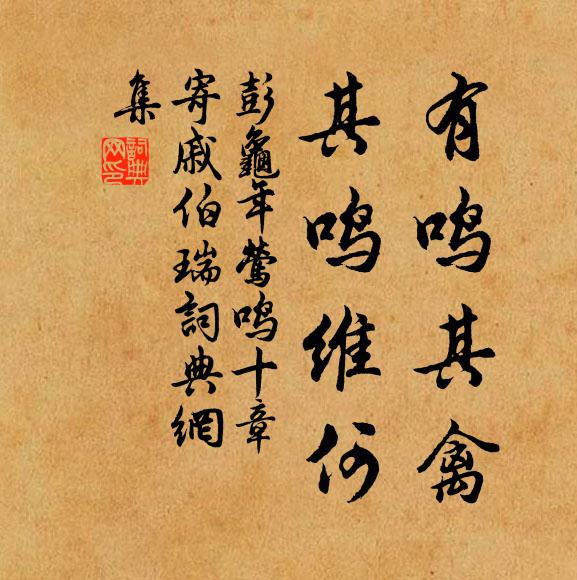 有鸣其禽
其鸣维何
彭龜年鶯鸣十章
寄戚伯瑞詞典網
集
詞典網印